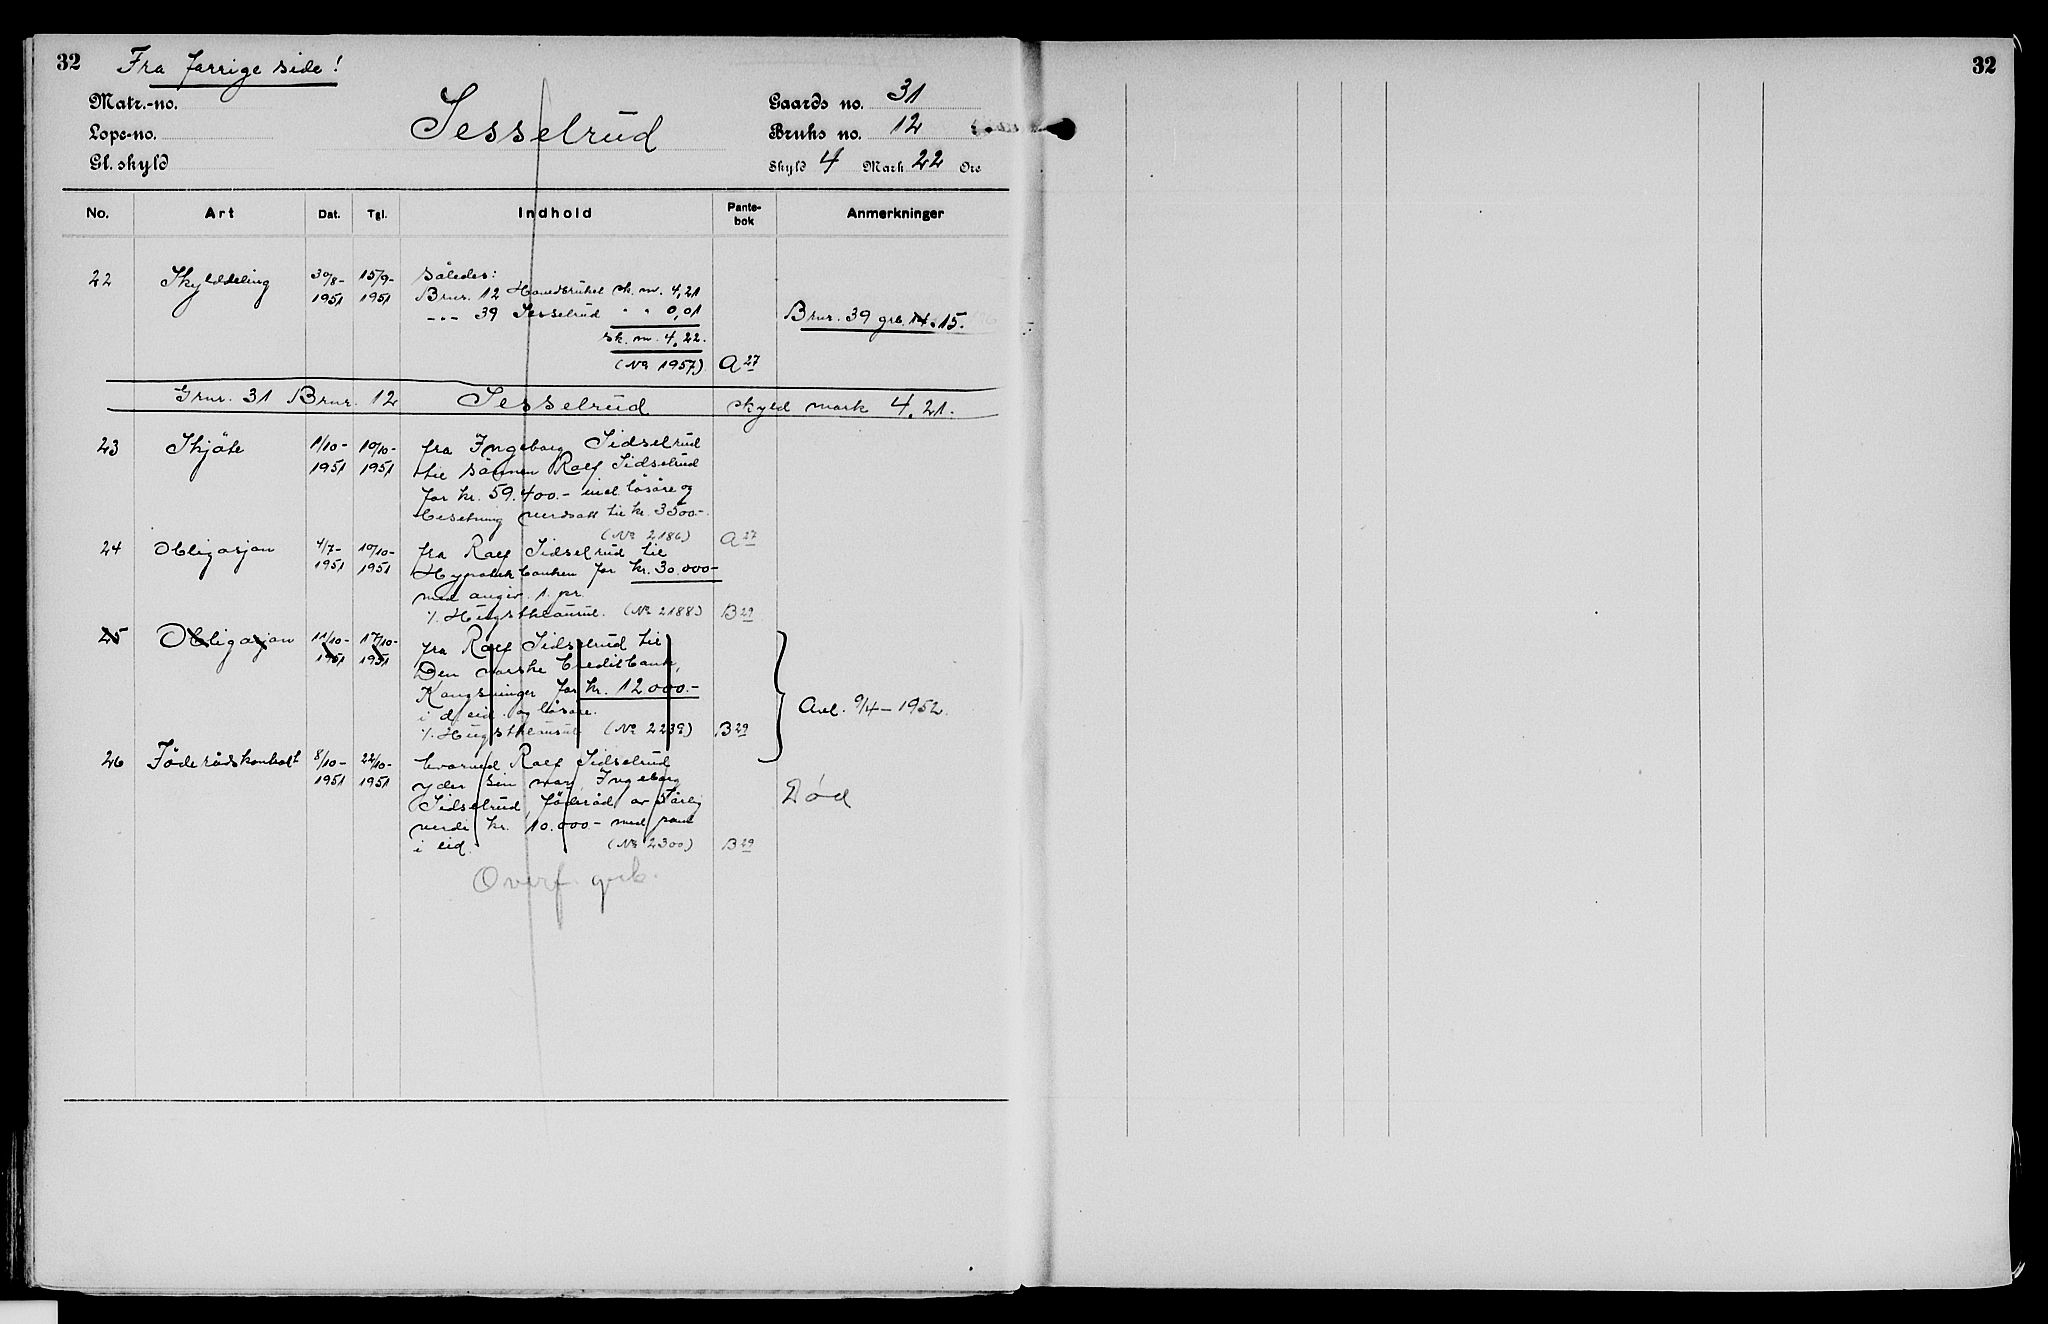 32 Fra forrige side! 32
Matr.-no.
Lope-no.
Gl. skyld
Sesselrud
Gaards no. 31
Bruks no. 12
Skyld 4 Mark 22 Ore
No. Art Dat. Tgl. Indhold Pante-bok Anmerkninger
22 Skylddeling 30/8- 15/9- således:
1951 1951 Brnr. 12 Hovedbruket sk. m. 4,21
-"- 39 Sesselrud " " 0,01 Brnr. 39 grb. 14. 15.
sk. m. 4,22.
(No 1957) A 27
Grnr. 31 Brnr. 12 Sesselrud skyld mark 4,21.
23 Skjøte 1/10- 10/10- fra Ingeborg Sidselrud
1951 1951 til sønnen Rolf Sidselrud
for kr. 59.400.- incl. løsøre og
besetning verdsatt til kr. 3500-.
(No 2186) A 27
24 Obligasjon 4/7- 10/10- fra Rolf Sidselrud til
1951 1951 Hypotekbanken for kr. 30.000-
med angiv. 1. pr.
% Hugstklausul. (No 2188) B 29
25 Obligasjon 11/10- 17/10- fra Rolf Sidselrud til
1951 1951 Den norske Creditbank,
Kongsvinger for kr. 12000.-
i d/eid. og løsøre. Avl. 9/4-1952.
% Hugstklausul (No 2239) B 29
26 Føderådskontrakt 8/10- 22/10- hvorved Rolf Sidselrud
1951 1951 yder sin mor Ingeborg
Sidselrud føderåd av årlig Død
verdi kr. 10.000- med pant
i eid. (No 2300) B 29
Overf. grb.